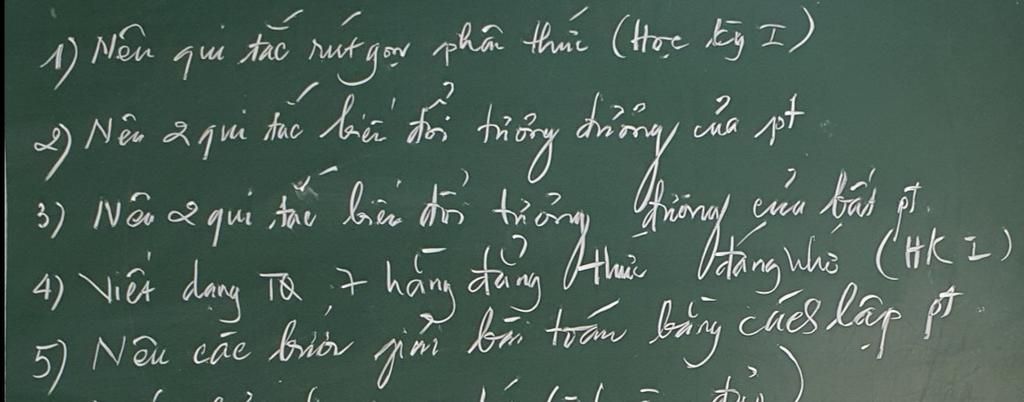 1) Nêu qui tắc rút gọn phân thức (Học kỳ I)
2) Nêu 2 qui tắc biến đổi tương đương của pt
3) Nêu 2 qui tắc biến đổi tương đương của bất pt.
4) Viết dạng TQ 7 hằng đẳng thức đáng nhớ (HK I)
5) Nêu các bước giải bài toán bằng cách lập pt.